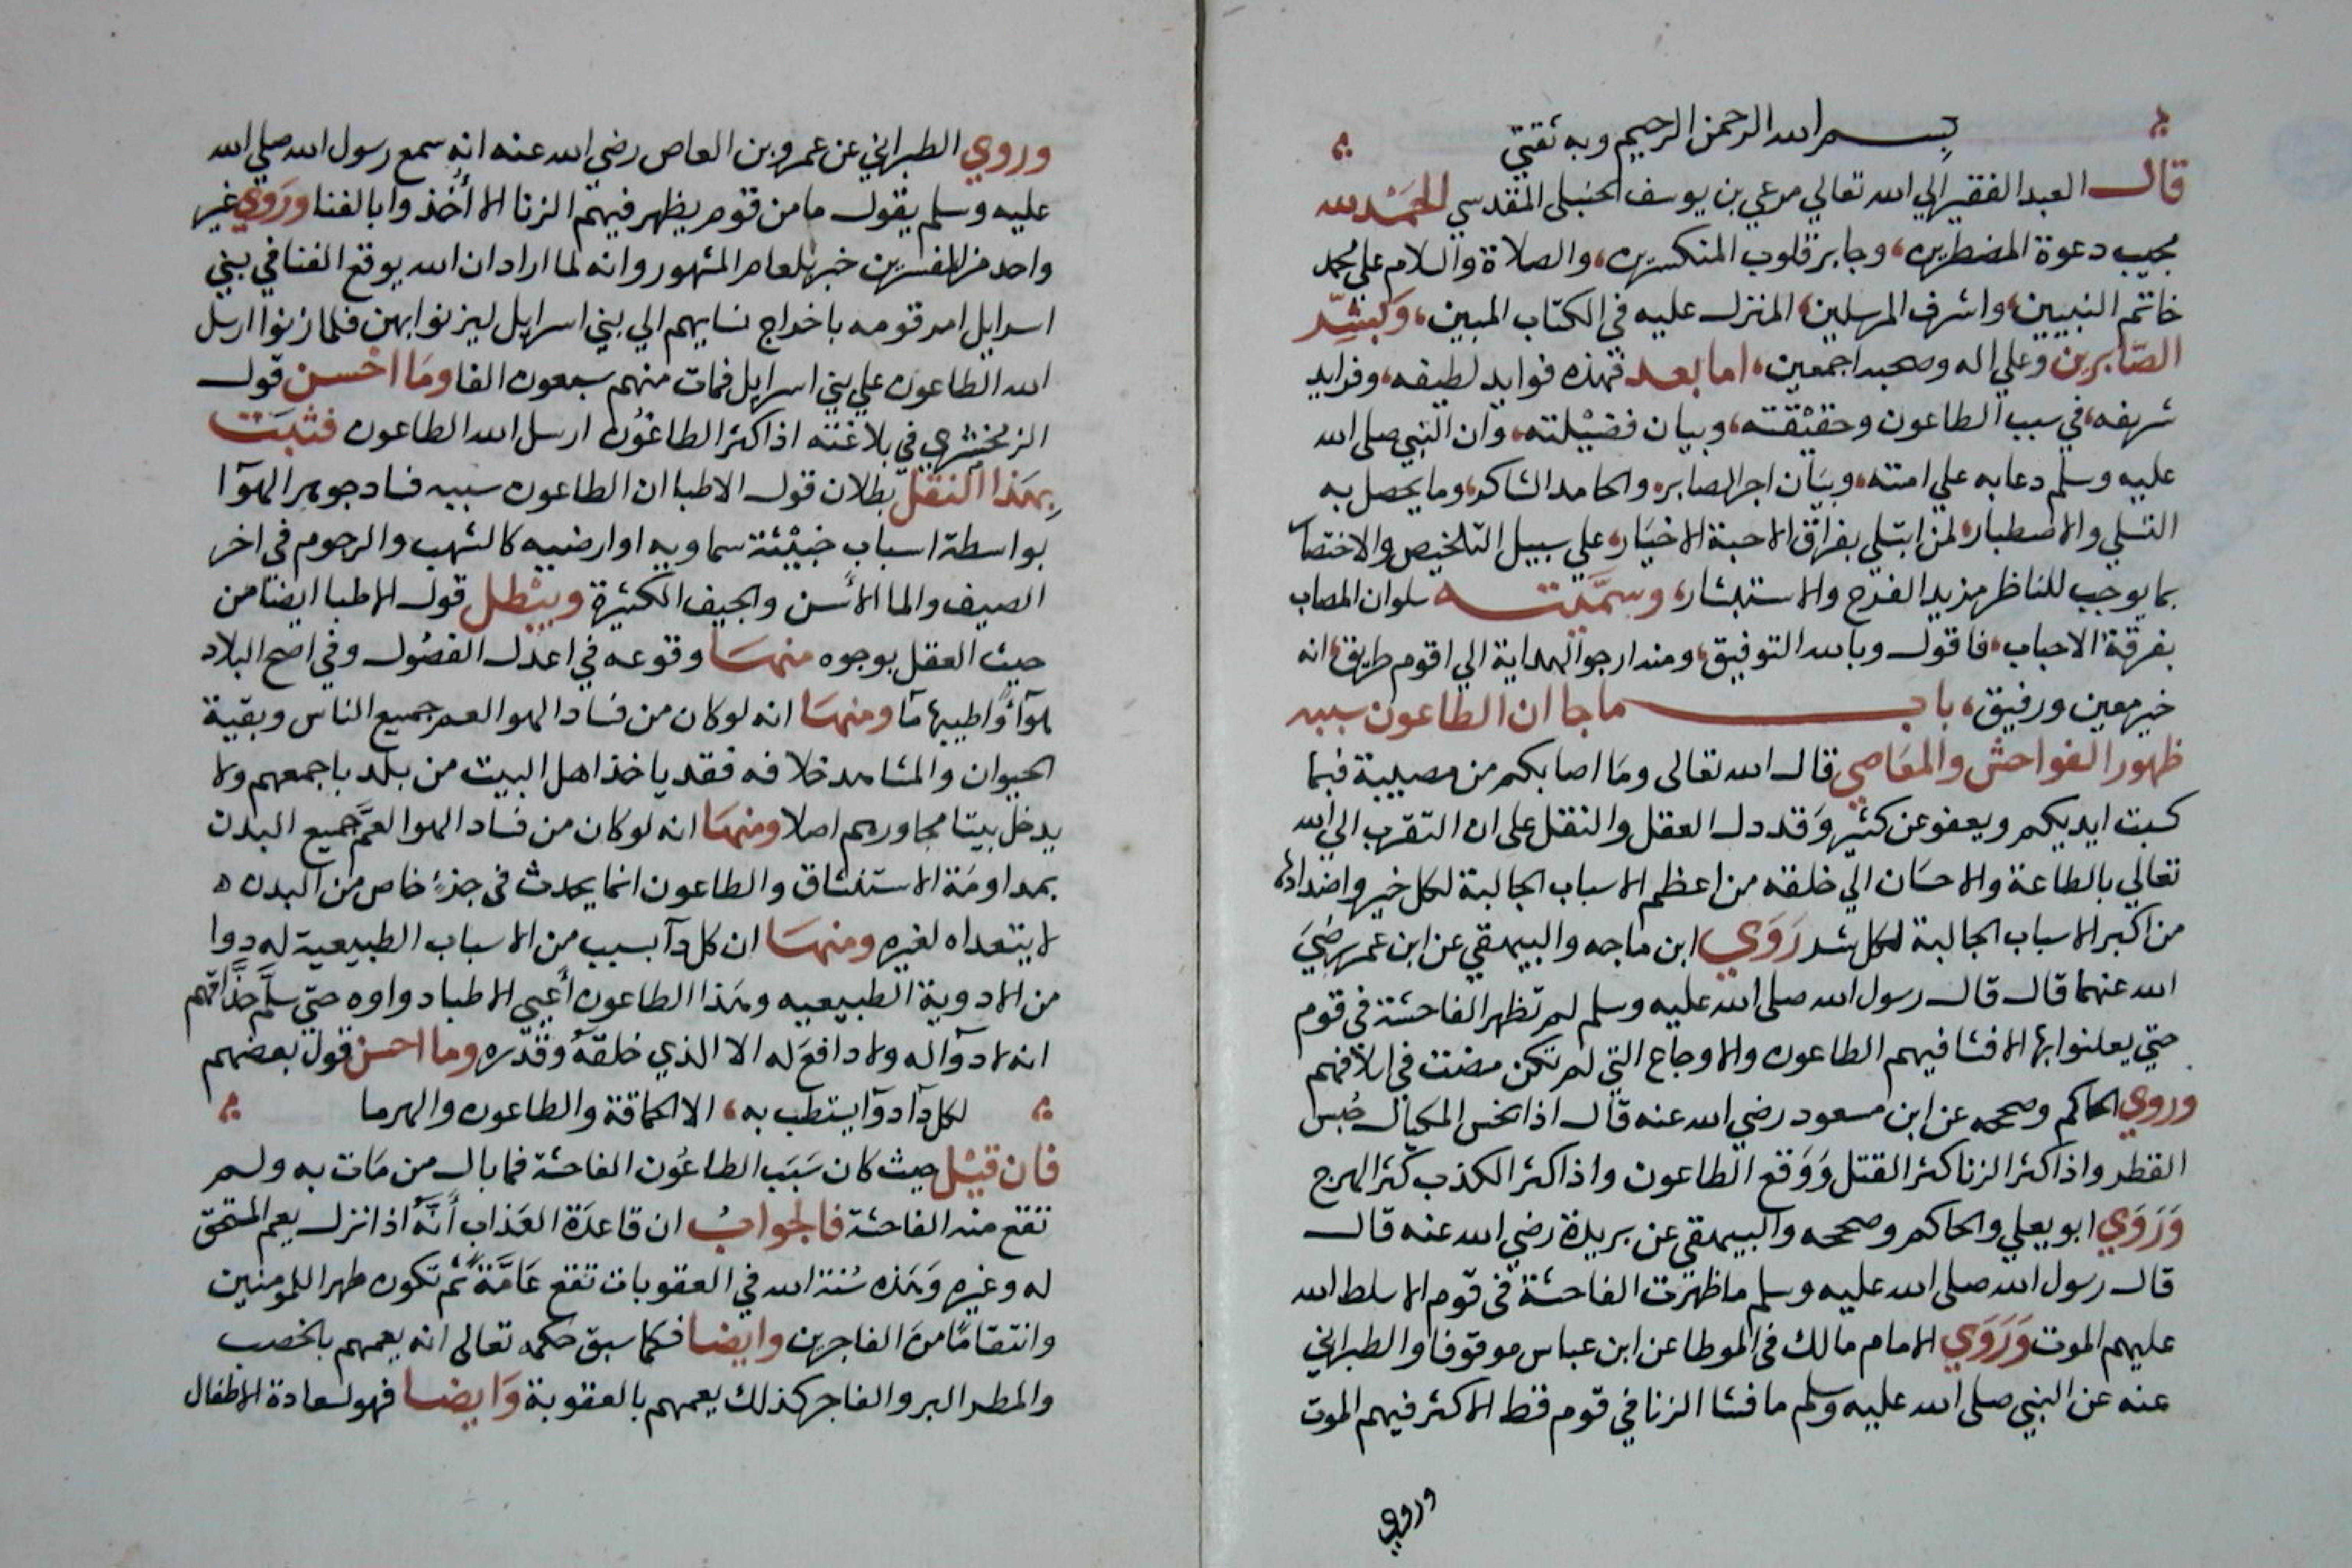 بسم الله الرحمن الرحيم وبه ثقتي
قال العبد الفقير الي الله تعالي مرعي بن يوسف الحنبلي المقدسي الحمد لله
مجيب دعوة المضطرين، وجابر قلوب المنكسرين، والصلاة والسلام علي محمد
خاتم النبيين، واشرف المرسلين، المنزل عليه في الكتاب المبين، وَبَشِّر
الصَّابرين وعلي اله وصحبه اجمعين، اما بعد فهذه فوايد لطيفه، وفرايد
شريفه، في سبب الطاعون وحقيقته، وبيان فضيلته، وان النبي صلى الله
عليه وسلم دعا به علي امته، وبيان اجر الصابر، والحامد الشاكر، وما يحصل به
التسلي والاصطبار، لمن ابتلي بفراق الاحبة الاخيار، علي سبيل التلخيص والاختصار
بما يوجب للناظر مزيد الفرح والاستبشار، وسمَّيته سلوان المصاب
بفرقة الاحباب، فاقول وبالله التوفيق، ومنه ارجو الهداية الي اقوم طريق، انه
خير معين ورفيق، باب ما جا ان الطاعون سببه
ظهور الفواحش والمعَاصي قال الله تعالى ومَا اصابكم من مصيبة فبما
كسبت ايديكم ويعفو عن كثير وَقد دل العقل والنقل على ان التقرب الي الله
تعالي بالطاعة والاحسَان الي خلقه من اعظم الاسباب الجالبة لكل خير واضدادها
من اكبر الاسباب الجالبة لكل شر رَوَي ابن ماجه والبيهقي عن ابن عمر رضيَ
الله عنهما قال قال رسول الله صلى الله عليه وسلم لم تظهر الفاحشة في قوم
حتي يعلنوا بها الا فشا فيهم الطاعون والاوجاع التي لم تكن مضت في اسلافهم
وروي الحاكم وصححه عن ابن مسعود رضي الله عنه قال اذا بخس المكيال حُبس
القطر واذا كثر الزنا كثر القتل وَوَقع الطاعون واذا كثر الكذب كثر الهرج
وَرَوَي ابو يعلي والحاكم وصححه والبيهقي عن بريدة رضي الله عنه قال
قال رسول الله صلى الله عليه وسلم ما ظهرت الفاحشة في قوم الا سلط الله
عليهم الموت وَرَوَي الامام مالك في الموطا عن ابن عباس موقوفا والطبراني
عنه عن النبي صلى الله عليه وسلم ما فشا الزنا في قوم قط الا كثر فيهم الموت
وروي
وروي الطبراني عن عمرو بن العاص رضي الله عنه انه سمع رسول الله صلي الله
عليه وسلم يقول ما من قوم يظهر فيهم الزنا الا أُخذوا بالفنا ورَوَي غير
واحد من المفسرين خبر بلعام المشهور وانه لما اراد ان الله يوقع الفنا في بني
اسرايل امر قومه باخراج نسايهم الي بني اسرايل ليزنوا بهن فلما زنوا ارسل
الله الطاعون علي بني اسرايل فمات منهم سبعون الفا ومَا احْسن قول
الزمخشري في بلاغته اذا كثر الطاغُون ارسل الله الطاعون فثبَت
بِهَذا النقل بطلان قول الاطبا ان الطاعون سببه فساد جوهر الهوآ
بواسطة اسباب خبيْثة سماويه او ارضيه كالشهب والرجوم في اخر
الصيف والما الأسن والجيف الكثيرة ويبْطل قول الاطبا ايضًا من
حيث العقل بوجوه منهَا وقوعه في اعدل الفصُول وفي اصح البلاد
هوآءً واطيبها مآ ومنهَا انه لو كان من فساد الهوا لعم جميع الناس وبقية
الحيوان والمشاهد خلافه فقد ياخذ اهل البيت من بلد باجمعهم ولا
يدخل بيتا مجاورهم اصلا ومنهَا انه لو كان من فساد الهوا لعَمَّ جميع البدن
بمداومَة الاستنشاق والطاعون انما يحدث في جزءٍ خاص من البدن
لا يتعداه لغيره ومنهَا ان كل دآ بسبب من الاسباب الطبيعية له دوا
من الادوية الطبيعيه وهَذا الطاعون أعيى الاطبا دواوه حتي سلَّم حُذَّاقهم
انه لا دوآ له ولا دافعَ له الا الذي خلقهُ وقَدّره وما احسن قول بعضهم
لكل دآ دوآ يستطب به، الا الحماقة والطاعون والهرما
فان قيْل حيث كان سَبَب الطاعُون الفاحشة فما بال من مَات به ولم
تقع منه الفاحشة فالجوابُ ان قاعدَة العَذاب أنَّهُ اذا نزل يعم المستحق
له وغيره وَهَذه سُنة الله في العقوبات تقع عَامَّةً ثم تكون طهرا للمومنين
وانتقامًا منَ الفاجرين وايضا فكما سبق حكمه تعالى انه يعمهم بالخصب
والمطر البر والفاجر كذلك يعمهم بالعقوبة وَايضا فهو لسعادة الاطفال